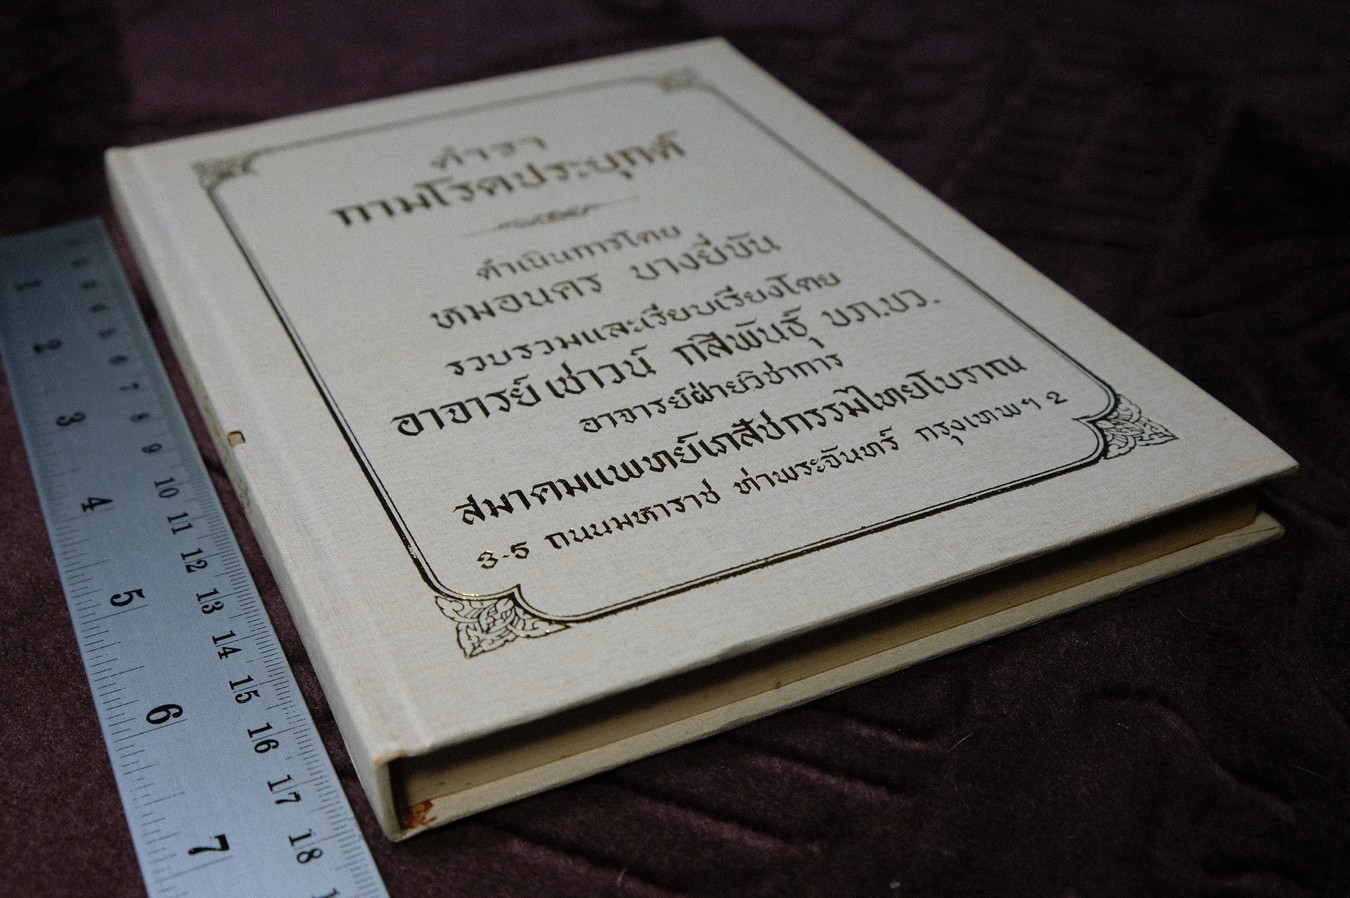 ตำรา
กามโรคประยุกต์
ดำเนินการโดย
หมอนคร บางยี่ขัน
รวบรวมและเรียบเรียงโดย
อาจารย์เชาวน์ กสิพันธุ์ บภ.บว.
อาจารย์ฝ่ายวิชาการ
สมาคมแพทย์เภสัชกรรมไทยโบราณ
3-5 ถนนมหาราช ท่าพระจันทร์ กรุงเทพฯ 2
1
2
3
4
5
6
7
5
6
7
8
9
10
11
12
13
14
15
16
17
18